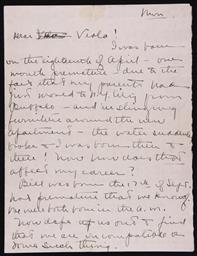 Mon
Dear Viola!
I was born
on the eighteenth of April - one
month premature - due to the
fact that my parents had
just moved to N.Y. City from
Buffalo - and in slinging
furniture around the new
apartment - the water suddenly
broke & I was born then &
there! Now how does that
affect my career?
Bill was born the 17th of Sept.
not premature that we know,
we were both born in the a.m.
Now dope us out & find
that we are incompatible or
some such thing.